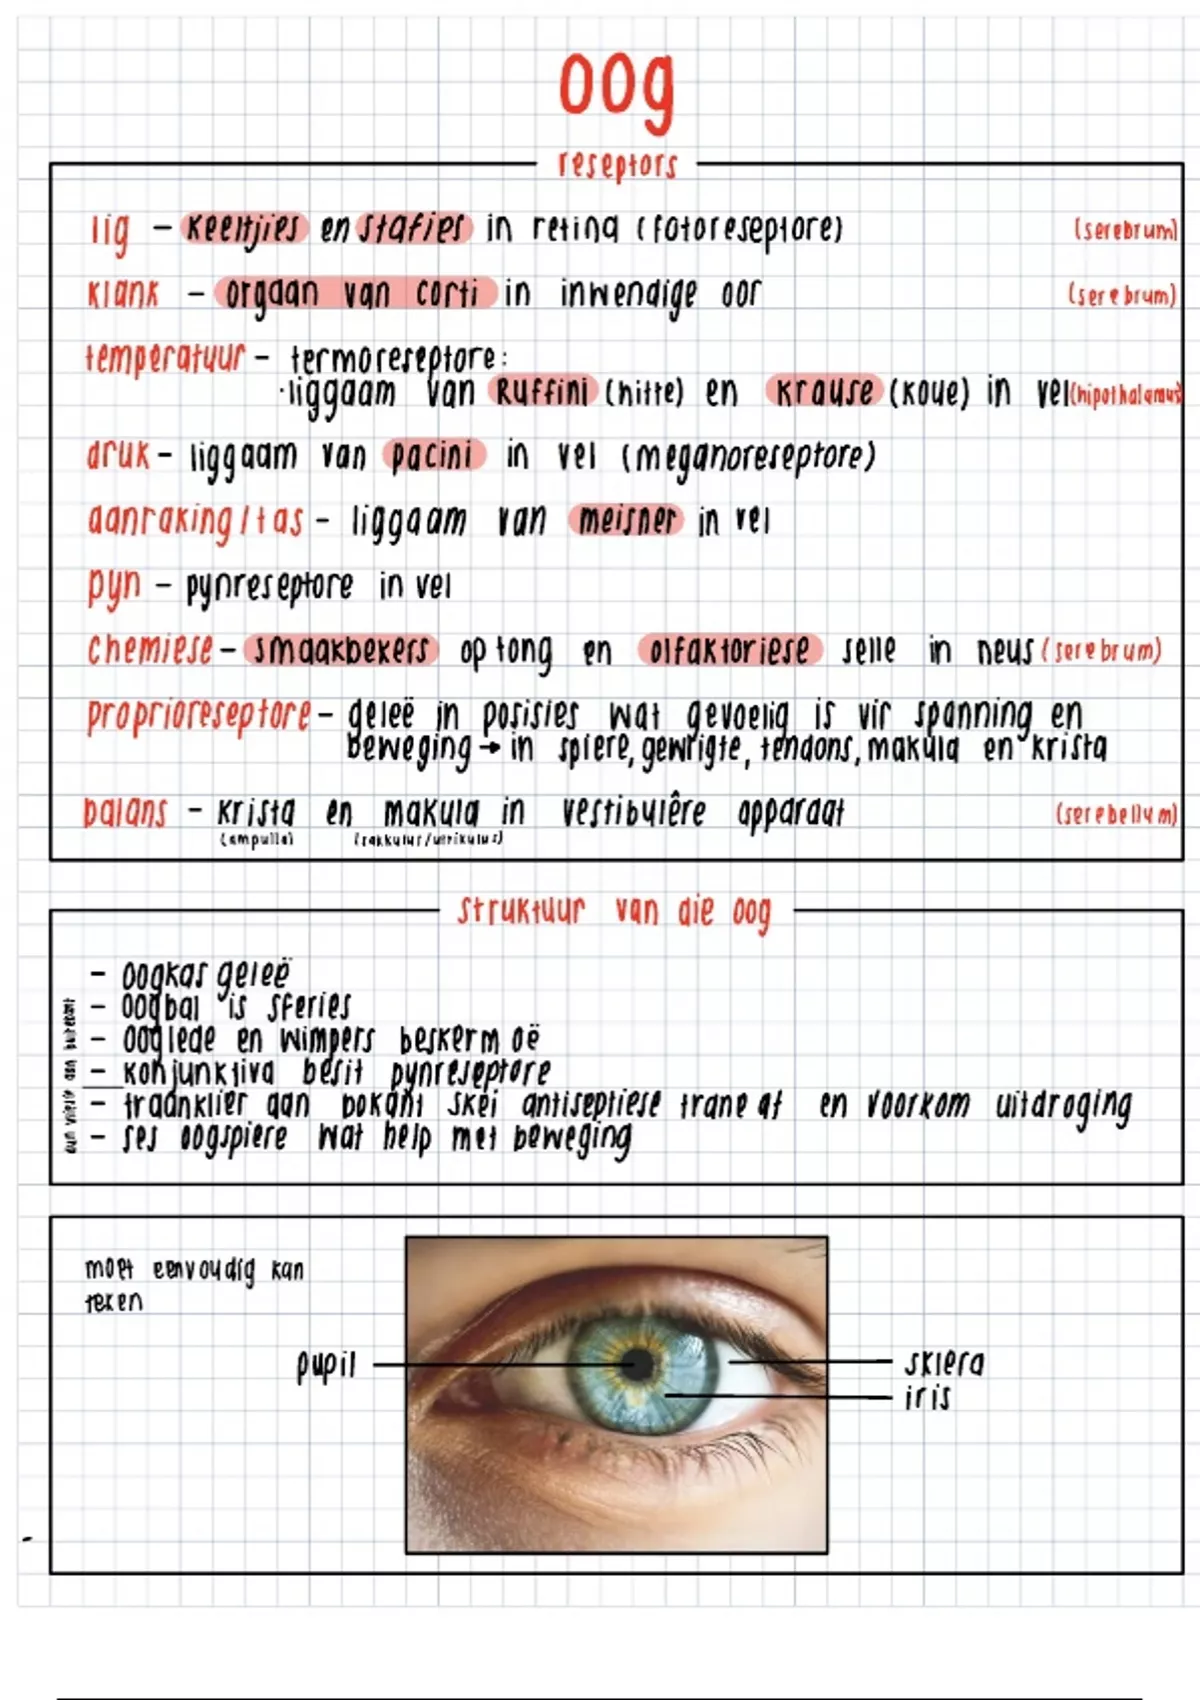 oog
reseptors
lig – keeltjies en stafies in retina (fotoreseptore) (serebrum)
klank – orgaan van corti in inwendige oor (serebrum)
temperatuur – termoreseptore:
·liggaam van Ruffini (hitte) en Krause (koue) in vel (hipothalamus)
druk – liggaam van pacini in vel (meganoreseptore)
aanraking/tas – liggaam van meisner in vel
pyn – pynreseptore in vel
chemiese – smaakbekers op tong en olfaktoriese selle in neus (serebrum)
proprioreseptore – geleë in posisies wat gevoelig is vir spanning en
beweging → in spiere, gewrigte, tendons, makula en krista
balans – krista en makula in vestibulêre apparaat (serebellum)
(ampulla) (sakkulus/utrikulus)
struktuur van die oog
– oogkas geleë
– oogbal is sferies
– ooglede en wimpers beskerm oë
– konjunktiva besit pynreseptore
– traanklier aan bokant skei antiseptiese trane af en voorkom uitdroging
– ses oogspiere wat help met beweging
dun vliesie aan buitekant
moet eenvoudig kan
teken
pupil
sklera
iris